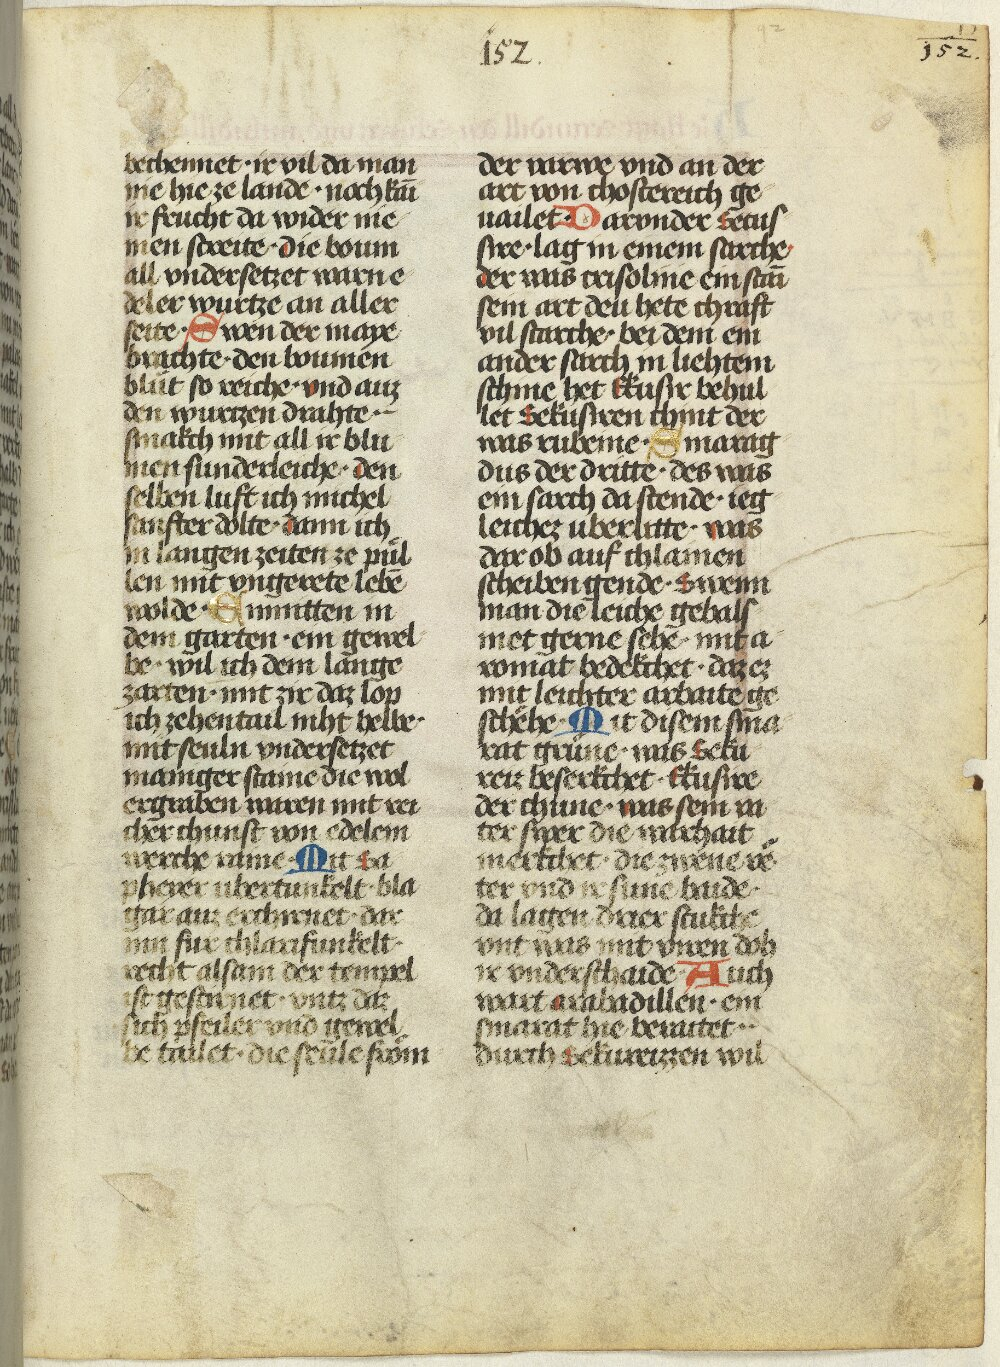 152.
152.
bechennet · ir vil da man
nie hie ze lande · noch kūū
ir frucht da wider nie
men screite · die boum
all vndersetzet warn e
deler wurtze an aller
seite · Swen der maye
brachte · den boumen
blüt so reiche · vnd auz
den wurtzen drahte ··
smakch mit all ir blu
men sunderleiche · den
selben luft ich michel
sanfter dolte · dann ich
in langen zeiten ze pul
len mit vngerete lebē
wolde · Enmitten in
dem garten · ein gewel
be · wil ich dem lange
zarten · mit zir daz lop
ich zehentail niht helbe ·
mit seuln vndersetzet
maniger staine die wol
ergraben waren mit rei
cher chunst von edelem
werche raine · Mit sa
phever vbertunkelt · bla
gar auz erchirnet · dar
inn fur chlarifunkelt ·
recht alsam der tempel
ist gestirnet · vntz daz
sich pfeiler vnd gewel
be tailet · die seule from
der varwe vnd an der
art von chostereich ge
uailet · Darvnder secus
sire · lag in einem sarche ·
der was crisoline ein stain
sein art deu hete chraft
vil starche · bei dem ein
ander sarch in liehtem
schine het Ekusir behul
let Sekusiren chint der
was rubeine · Smarag
dus der dritte · des was
ein sarch da stende · ieg
leichez uberlitte · was
dar ob auf chlamen
scheiben gende · swenn
man die leiche gebals
met gerne sehē · mit a
romat bedekchet · daz ez
mit leichter arbaite ge
schehe · Mit disem sma
rat grüne · was Seku
reiz beserkchet · Ekusire
der chüne · was sein va
ter swer die warhait
merkchet · die zwene ve
ter vnd ir sune baide ·
da lagen drier stukche
vnt was mit viren doh
ir vnderschaide · Auch
wart arabadillen · ein
smarat hie beraitet ··
durch Sekureizzen wil